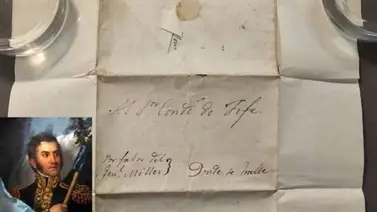 Al Sor Conde de Fife
Por favor del
Genl Miller } Donde se halle